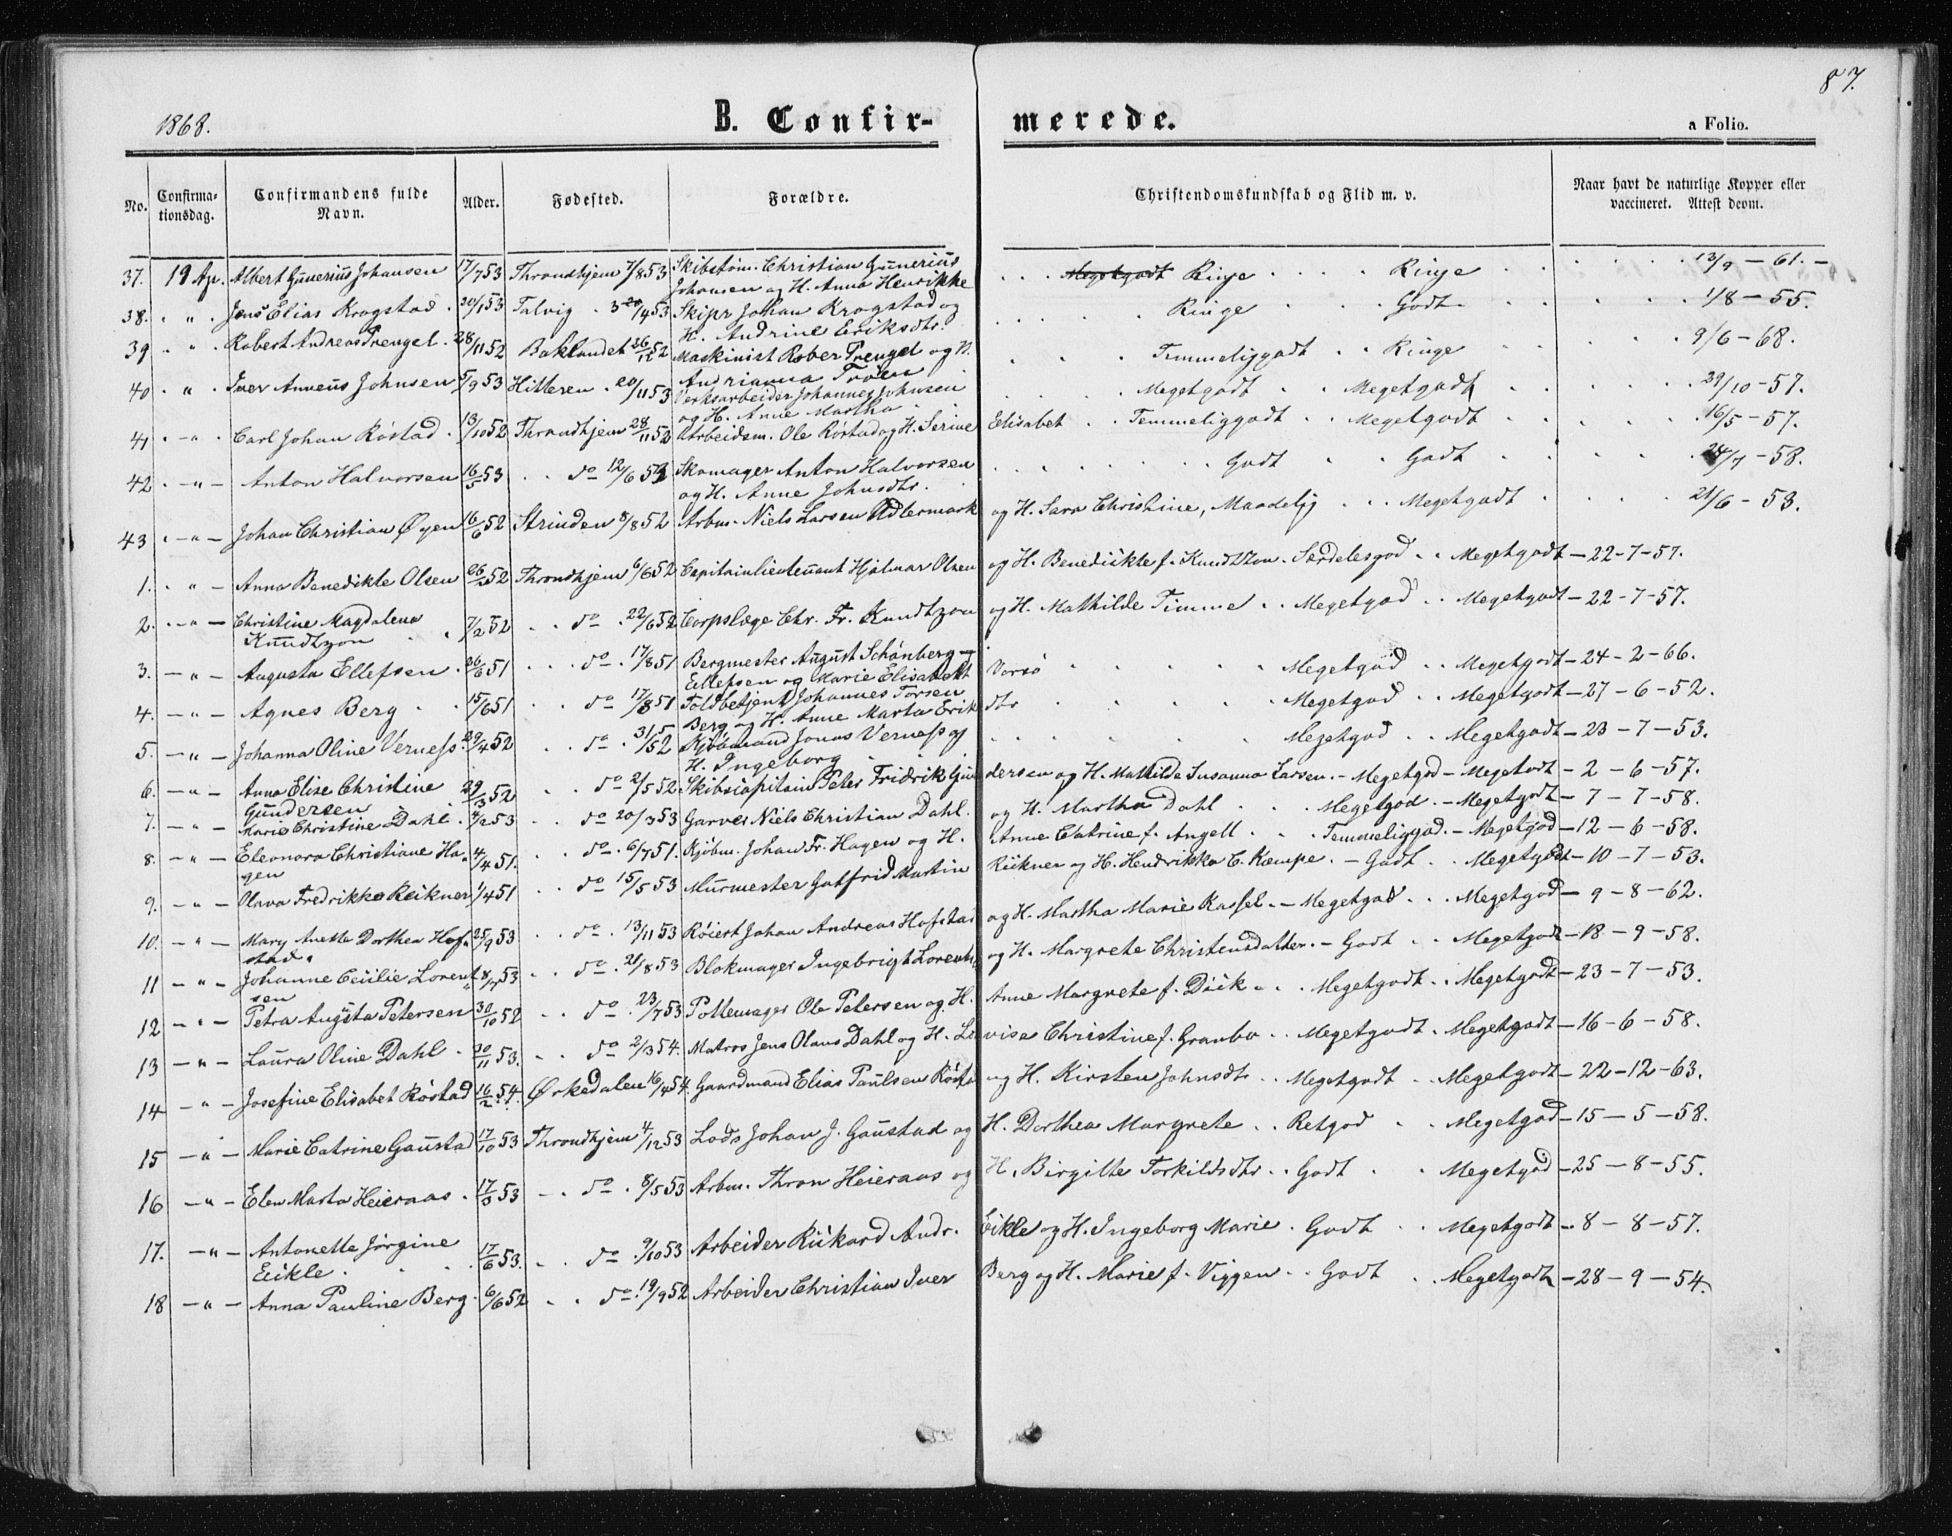 87.
1868.
B. Confirmerede.
a Folio.
No. Confirmationsdag. Confirmandens fulde Navn. Alder. Fødested. Forældre. Christendomskundskab og Flid m. v. Naar havt de naturlige Kopper eller vaccineret. Attest derom.
37. 19 Ap. Albert Gunerius Johansen 17/7 53 Throndhjem 7/8 53 Skibstøm. Christian Gunerius Johansen og H. Anna Henrikke Megetgodt Ringe Ringe 13/9 - 61.
38. " Jens Elias Krogstad 20/1 53 Talvig 3 20/4 53 Skipr Johan Krogstad og H. Andrine Eriksdtr. Ringe Godt 1/8 - 55.
39 " Robert Andreas Trengel 28/11 52 Baklandet 26/12 52 Maskinist Rober Trengel og H. Andrianna Temmeliggodt Ringe 9/6 - 68.
40 " Iver Anneus Johnsen 5/9 53 Hitteren 20/11 53 Verksarbeider Johannes Johnsen og H. Anne Martha Megetgodt Megetgodt 29/10 - 57.
41 - " - Carl Johan Röstad 13/10 52 Throndhjem 28/11 52 Arbeidsm. Ole Röstad og H. Serine Elisabet Temmeliggodt Megetgodt 16/5 - 57.
42 - " - Anton Halvorsen 16/5 53 do 12/6 53 Skomager Anton Halvorsen og H. Anne Johnsdtr. Godt Godt 24/7 - 58.
43 - " - Johan Christian Øyen 16/6 52 Strinden 8/8 52 Arbm. Niels Larsen Udlermark og H. Sara Christine, Maadelig Megetgodt 21/6 - 53.
1. " - Anna Benedikte Olsen 26/2 52 Throndhjem 6/6 52 Capitainlieutenant Hjalmar Olsen og H. Benedickte f. Knudtzon Særdelesgod Megetgodt - 22-7-57.
2. - " - Christine Magdalena Knudtzon 7/2 52 do 22/6 52 Corpslæge Chr. Fr. Knudtzon og H. Mathilde Timme Megetgod Megetgodt - 22-7-57.
3. - " - Augusta Ellefsen 26/6 51 do 17/8 51 Bergmester August Schönberg Ellefsen og Marie Elisabeth Vorsö Megetgod Megetgodt - 24-2-66.
4. - " - Agnes Berg 15/6 51 do 17/8 51 Toldbetjent Johannes Torsen Berg og H. Anne Marta Erik dtr Megetgod Megetgodt - 27-6-52.
5. - " - Johanna Oline Verness 29/4 52 do 31/5 52 Kjöbmand Jonas Verness og H. Ingeborg Megetgod Megetgodt - 23-7-53.
6. - " - Anna Elise Christine Gundersen 29/3 52 do 2/5 52 Skibscapitain Peter Fridrik Gun dersen og H. Mathilde Susanna Larsen - Megetgod - Megetgodt - 2-6-57.
7. - " - Marie Christine Dahl 4/2 53 do 20/3 53 Garver Niels Christian Dahl og H. Martha Dahl Megetgod - Megetgodt - 7-7-58.
8. - " - Eleonora Christiane Hagen 4/4 51. do 6/7 51. Kjöbm. Johan Fr. Hagen og H. Anne Catrine f. Angell Temmeliggod - Megetgod - 12-6-58.
9. - " - Olava Fredrikke Reikner 1/4 51 do 15/5 53 Murmester Gotfrid Martin Reikner og H. Hendrikka C. Kæmpe - Godt Megetgodt - 10-7-53.
10. - " - Mary Anette Dorthea Hofstad 25/9 53 do 13/11 53 Röiert Johan Andreas Hofstad og H. Martha Marie Kassel - Megetgod Megetgod - 9-8-62.
11 - " - Johanne Cecilie Lorentsen 8/7 53 do 21/8 53 Blokmager Ingebrigt Lorents og H. Margrete Christensdatter - Godt Megetgodt - 18-9-58.
12 - " - Petra Augusta Petersen 30/10 52 do 23/7 53 Pottemager Ole Petersen og H. Anne Margrete f. Dick Megetgodt Megetgodt - 23-7-53.
13 - " - Laura Oline Dahl 20/11 53. do 2/3 54. Matros Jens Olaus Dahl og H. Lovise Christine f. Granbo Megetgodt Megetgodt - 16-6-58.
14 - " - Josefine Elisabet Röstad 16/2 54. Ørkedalen 16/4 54. Gaardmand Elias Paulsen Rösta og H. Kirsten Johnsdtr Megetgodt Megetgodt - 22-12-63.
15 - " - Marie Catrine Gaustad 17/10 53 Throndhjem 4/12 53 Lods Johan J. Gaustad og H. Dorthea Margrete Retgod Megetgod - 15-5-58.
16 - " - Elen Marta Heieraas 17/3 53 do 8/5 53 Arbm. Thron Heieraas og H. Birgitte Torkildsdtr Godt Megetgod - 25-8-55.
17. - " - Antonette Jörgine Eikle 17/6 53. do 9/10 53 Arbeider Rikard Andr. Eikle og H. Ingeborg Marie Godt Megetgodt - 8-8-57.
18 - " - Anna Pauline Berg 6/6 52 do 19/9 52 Arbeider Christian Iver Berg og H. Marie f. Viggen Godt Megetgodt - 28-9-54.